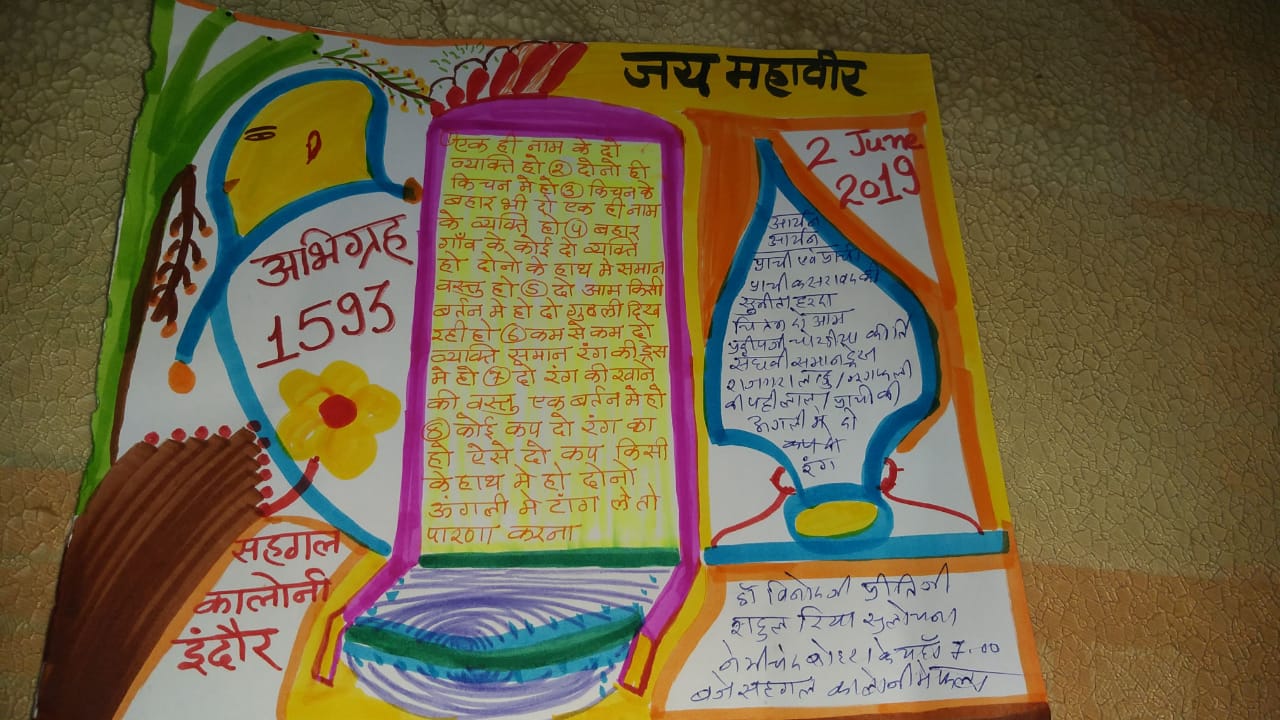 जय महावीर
2 June
2019
अभिग्रह
1593
सहगल
कालोनी
इंदौर
① एक ही नाम के दो
व्यक्ति हो ② दोनो ही
किचन मे हो ③ किचन के
बहार भी दो एक ही नाम
के व्यक्ति हो ④ बहार
गाँव के कोई दो व्यक्ति
हो दोनो के हाथ मे समान
वस्तु हो ⑤ दो आम किसी
बर्तन मे हो दो गुठली दिख
रही हो ⑥ कम से कम दो
व्यक्ति समान रंग की ड्रेस
मे हो ⑦ दो रंग की खाने
की वस्तु एक बर्तन मे हो
⑧ कोई कप दो रंग का
हो ऐसे दो कप किसी
के हाथ मे हो दोनो
ऊंगली मे टांग ले तो
पारणा करना
आर्यन
आर्यन
प्राची एवं प्राची
प्राची कसरावद की
सुनीता हरदा
दो आम
संघवी समान ड्रेस
प्राची की
ऊंगली मे दो
कप दो
रंग
डॉ विनोदजी प्रीतिजी
राहुल रिया सुलोचना
नेमीचंद बोहरा के यहाँ 7.00
बजे सहगल कालोनी मे फला